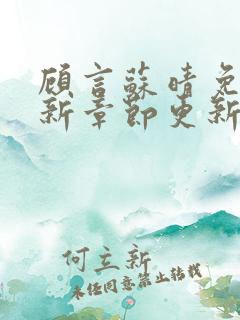 顾言蘇晴免
新章節更新
何立新
未经同意禁止转载